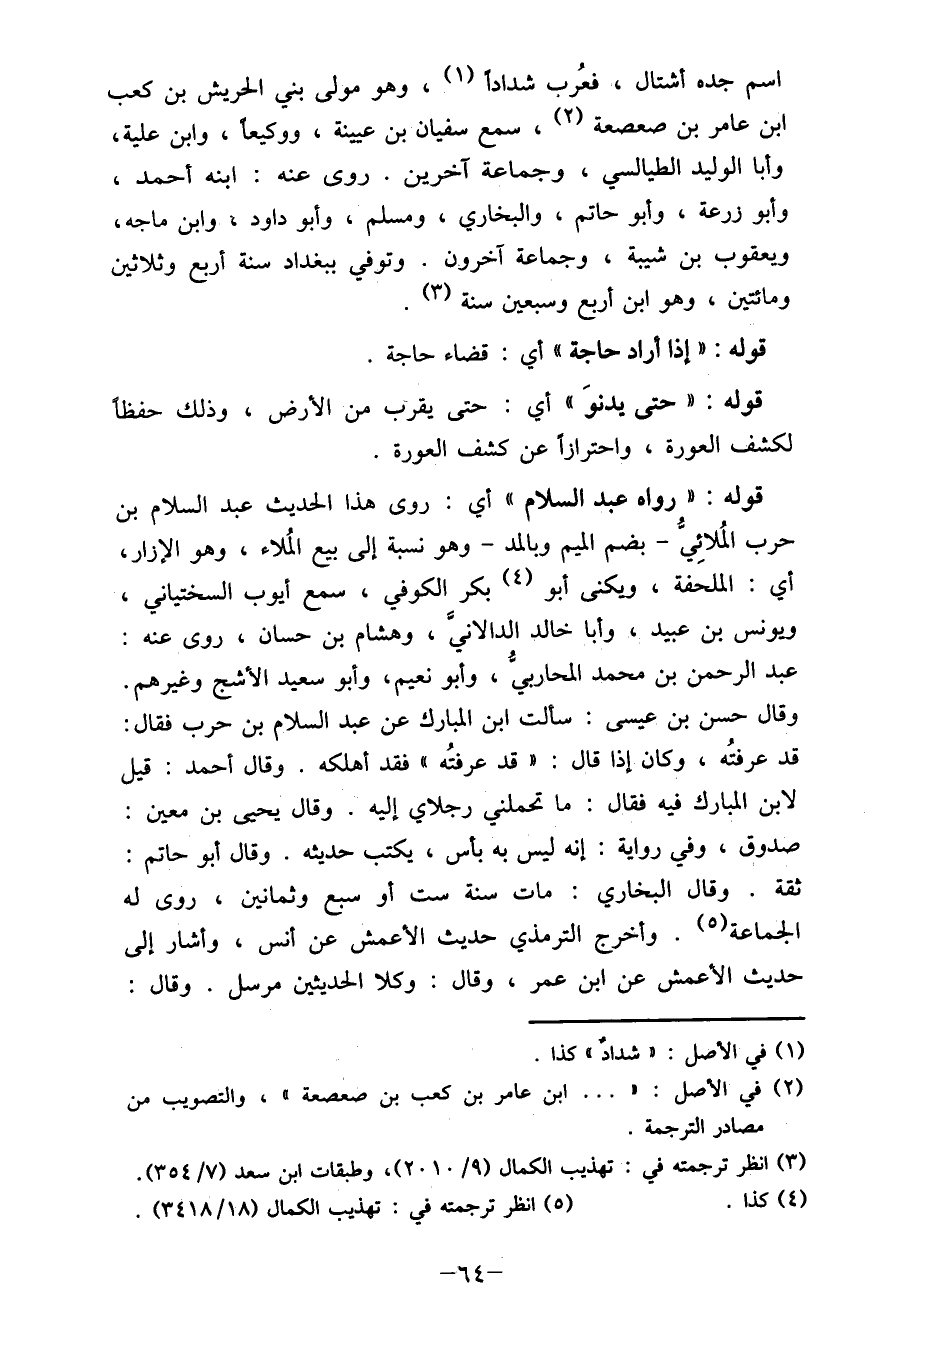 اسم جده أشتال ، فعُرب شداداً (١) ، وهو مولى بني الحريش بن كعب
ابن عامر بن صعصعة (٢) ، سمع سفيان بن عيينة ، ووكيعاً ، وابن علية،
وأبا الوليد الطيالسي ، وجماعة آخرين . روى عنه : ابنه أحمد ،
وأبو زرعة ، وأبو حاتم ، والبخاري ، ومسلم ، وأبو داود ، وابن ماجه،
ويعقوب بن شيبة ، وجماعة آخرون . وتوفي ببغداد سنة أربع وثلاثين
ومائتين ، وهو ابن أربع وسبعين سنة (٣) .
قوله : « إذا أراد حاجة » أي : قضاء حاجة .
قوله : « حتى يدنوَ » أي : حتى يقرب من الأرض ، وذلك حفظاً
لكشف العورة ، واحترازاً عن كشف العورة .
قوله : « رواه عبد السلام » أي : روى هذا الحديث عبد السلام بن
حرب المُلائِيُّ – بضم الميم وبالمد – وهو نسبة إلى بيع المُلاء ، وهو الإزار،
أي : الملحفة ، ويكنى أبو (٤) بكر الكوفي ، سمع أيوب السختياني ،
ويونس بن عبيد ، وأبا خالد الدالانيَّ ، وهشام بن حسان ، روى عنه :
عبد الرحمن بن محمد المحاربيُّ ، وأبو نعيم، وأبو سعيد الأشج وغيرهم.
وقال حسن بن عيسى : سألت ابن المبارك عن عبد السلام بن حرب فقال:
قد عرفتُه ، وكان إذا قال : « قد عرفتُه » فقد أهلكه . وقال أحمد : قيل
لابن المبارك فيه فقال : ما تحملني رجلاي إليه . وقال يحيى بن معين :
صدوق ، وفي رواية : إنه ليس به بأس ، يكتب حديثه . وقال أبو حاتم :
ثقة . وقال البخاري : مات سنة ست أو سبع وثمانين ، روى له
الجماعة(٥) . وأخرج الترمذي حديث الأعمش عن أنس ، وأشار إلى
حديث الأعمش عن ابن عمر ، وقال : وكلا الحديثين مرسل . وقال :
(١) في الأصل : « شدادٌ » كذا .
(٢) في الأصل : « ... ابن عامر بن كعب بن صعصعة » ، والتصويب من
مصادر الترجمة .
(٣) انظر ترجمته في : تهذيب الكمال (٩/ ٢٠١٠)، وطبقات ابن سعد (٧/ ٣٥٤).
(٤) كذا . (٥) انظر ترجمته في : تهذيب الكمال (١٨/ ٣٤١٨) .
–٦٤–